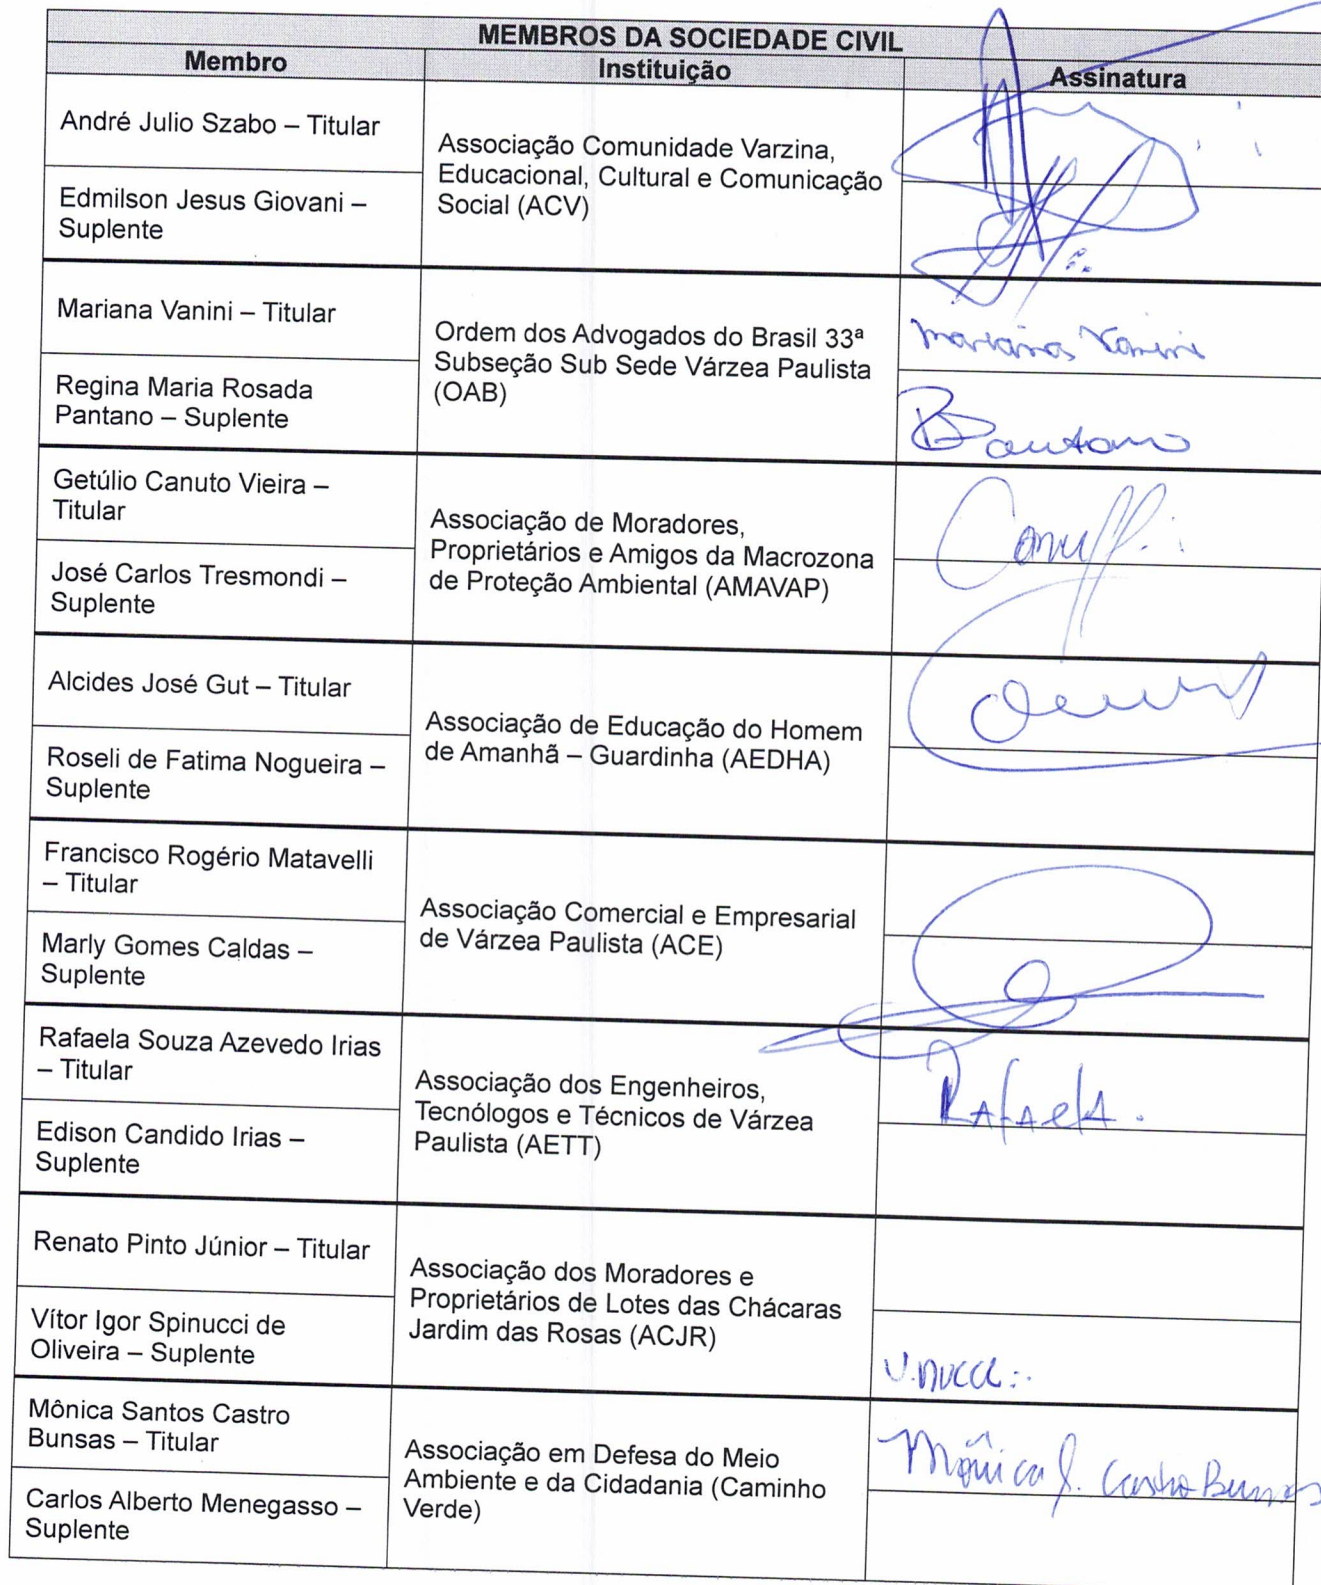 MEMBROS DA SOCIEDADE CIVIL
Membro Instituição Assinatura
André Julio Szabo – Titular
Associação Comunidade Varzina,
Educacional, Cultural e Comunicação
Social (ACV)
Edmilson Jesus Giovani –
Suplente
Mariana Vanini – Titular
Ordem dos Advogados do Brasil 33ª
Subseção Sub Sede Várzea Paulista
(OAB)
Mariana Vanini
Regina Maria Rosada
Pantano – Suplente
Pantano
Getúlio Canuto Vieira –
Titular
Associação de Moradores,
Proprietários e Amigos da Macrozona
de Proteção Ambiental (AMAVAP)
José Carlos Tresmondi –
Suplente
Alcides José Gut – Titular
Associação de Educação do Homem
de Amanhã – Guardinha (AEDHA)
Roseli de Fatima Nogueira –
Suplente
Francisco Rogério Matavelli
– Titular
Associação Comercial e Empresarial
de Várzea Paulista (ACE)
Marly Gomes Caldas –
Suplente
Rafaela Souza Azevedo Irias
– Titular
Associação dos Engenheiros,
Tecnólogos e Técnicos de Várzea
Paulista (AETT)
Rafaela.
Edison Candido Irias –
Suplente
Renato Pinto Júnior – Titular
Associação dos Moradores e
Proprietários de Lotes das Chácaras
Jardim das Rosas (ACJR)
Vítor Igor Spinucci de
Oliveira – Suplente
Mônica Santos Castro
Bunsas – Titular
Associação em Defesa do Meio
Ambiente e da Cidadania (Caminho
Verde)
Mônica S. Castro Bunsas
Carlos Alberto Menegasso –
Suplente